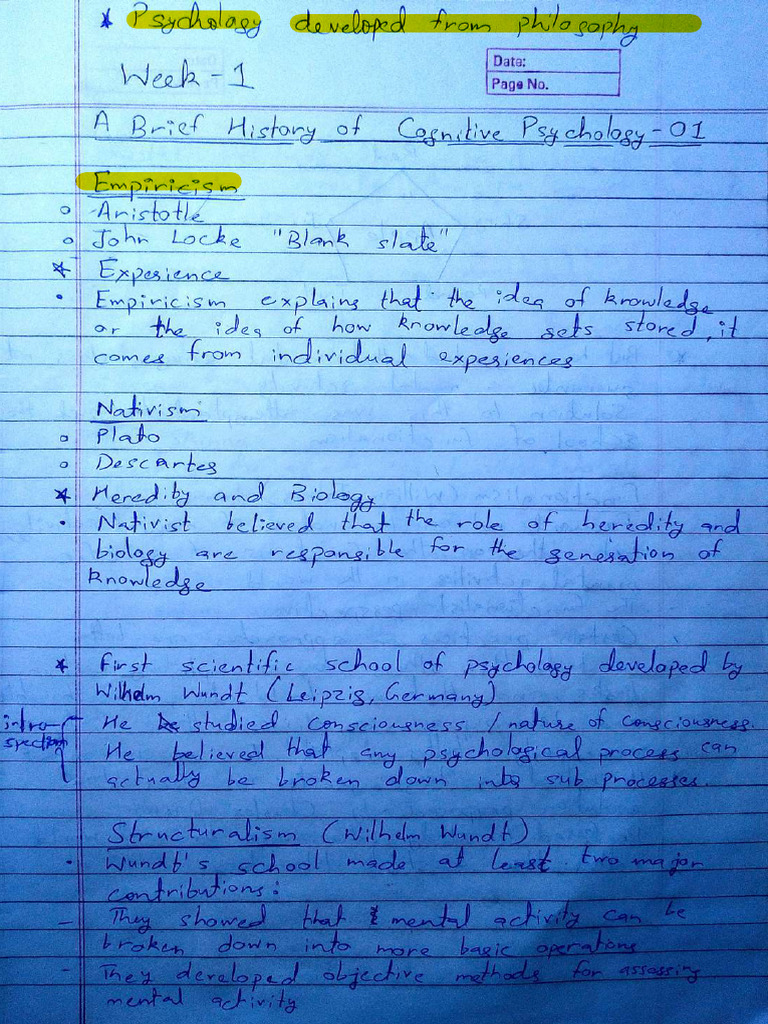 * Psychology developed from philosophy
Week-1
Date:
Page No.
A Brief History of Cognitive Psychology-01
Empiricism
o Aristotle
o John Locke "Blank slate"
* Experience
• Empiricism explains that the idea of knowledge
or the idea of how knowledge gets stored, it
comes from individual experiences
Nativism
o Plato
o Descartes
* Heredity and Biology
• Nativist believed that the role of heredity and
biology are responsible for the generation of
knowledge
* First scientific school of psychology developed by
Wilhelm Wundt (Leipzig, Germany)
intro-
spection
He studied consciousness / nature of consciousness.
He believed that any psychological process can
actually be broken down into sub processes.
Structuralism (Wilhelm Wundt)
• Wundt's school made at least two major
contributions:
- They showed that mental activity can be
broken down into more basic operations
- They developed objective methods for assessing
mental activity